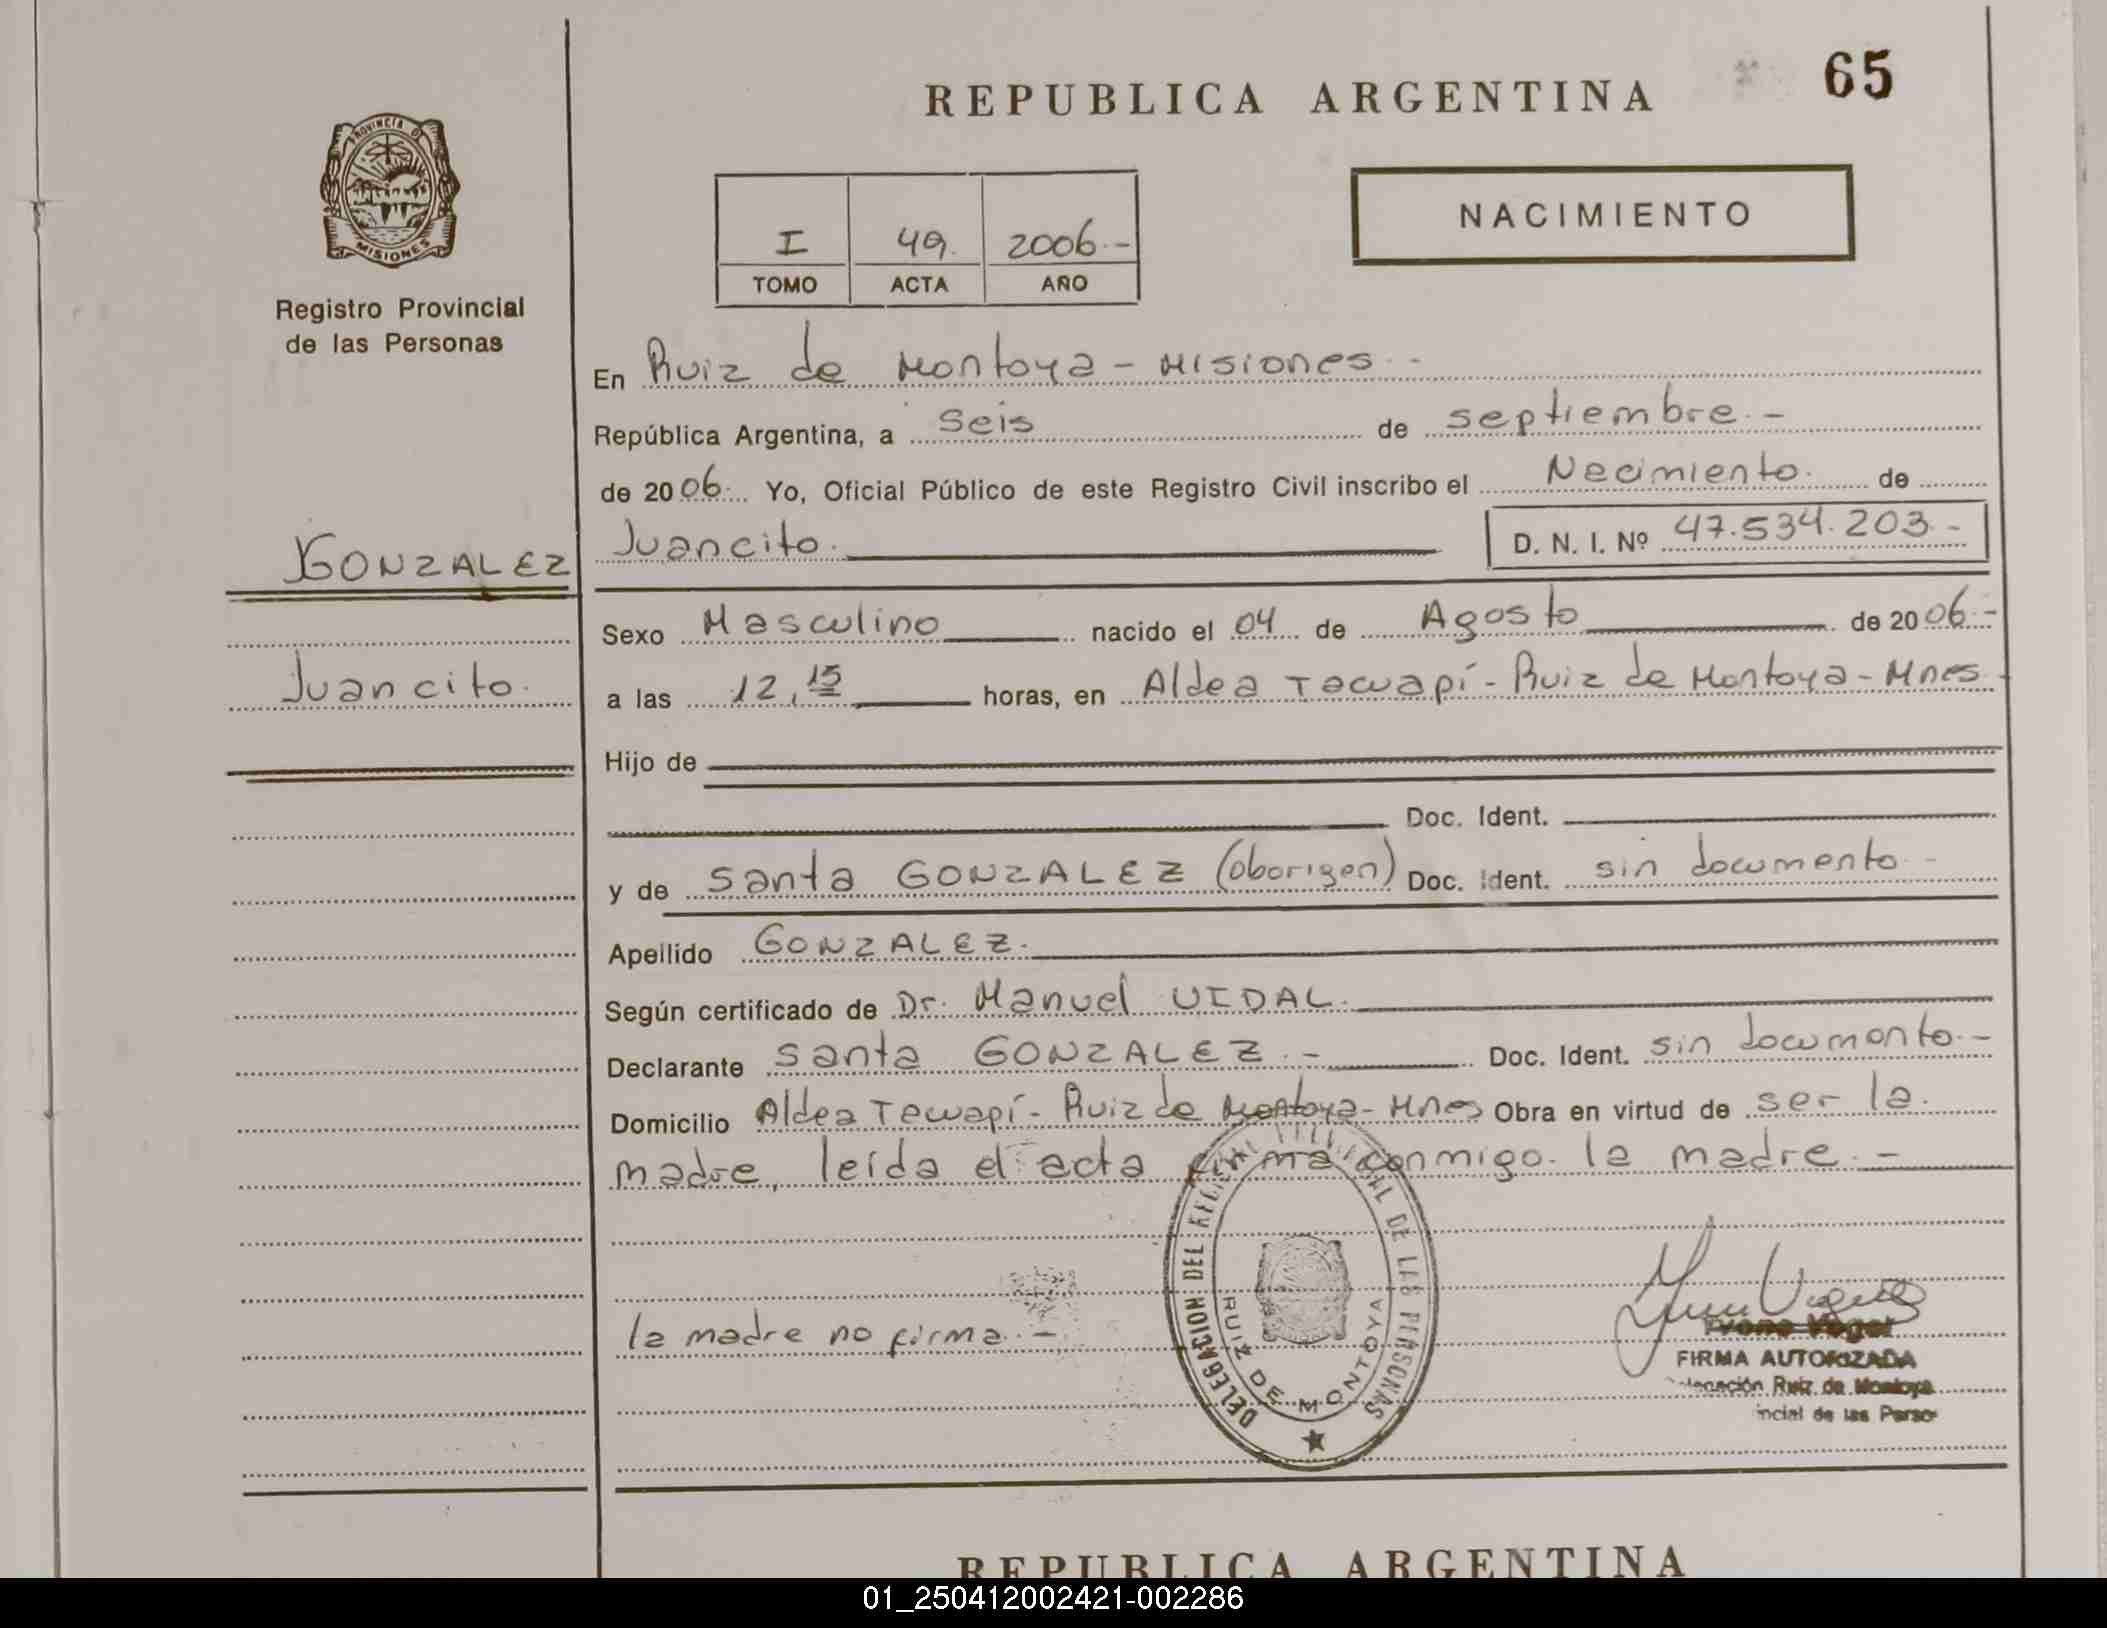 REPUBLICA ARGENTINA
65
PROVINCIA D MISIONES
Registro Provincial
de las Personas
I 49. 2006.-
TOMO ACTA AÑO
NACIMIENTO
En Ruiz de Montoya - Misiones.-
República Argentina, a seis de septiembre.-
de 2006. Yo, Oficial Público de este Registro Civil inscribo el Nacimiento. de
Juancito. D. N. I. Nº 47.534.203.-
GONZALEZ
Juancito.
Sexo Masculino nacido el 04 de Agosto de 2006.-
a las 12,15 horas, en Aldea Tacuapí - Ruiz de Montoya - Mnes -
Hijo de
Doc. Ident.
y de Santa GONZALEZ (aborigen) Doc. Ident. sin documento.-
Apellido GONZALEZ.
Según certificado de Dr. Manuel VIDAL.
Declarante Santa GONZALEZ.- Doc. Ident. sin documento.-
Domicilio Aldea Tacuapí - Ruiz de Montoya - Mnes Obra en virtud de ser la.
madre, leída el acta firma conmigo. la madre.-
la madre no firma.-
DELEGACION DEL REGISTRO PROVINCIAL DE LAS PERSONAS
RUIZ DE MONTOYA
FIRMA AUTORIZADA
Ruiz de Montoya
de las
REPUBLICA ARGENTINA
01_250412002421-002286